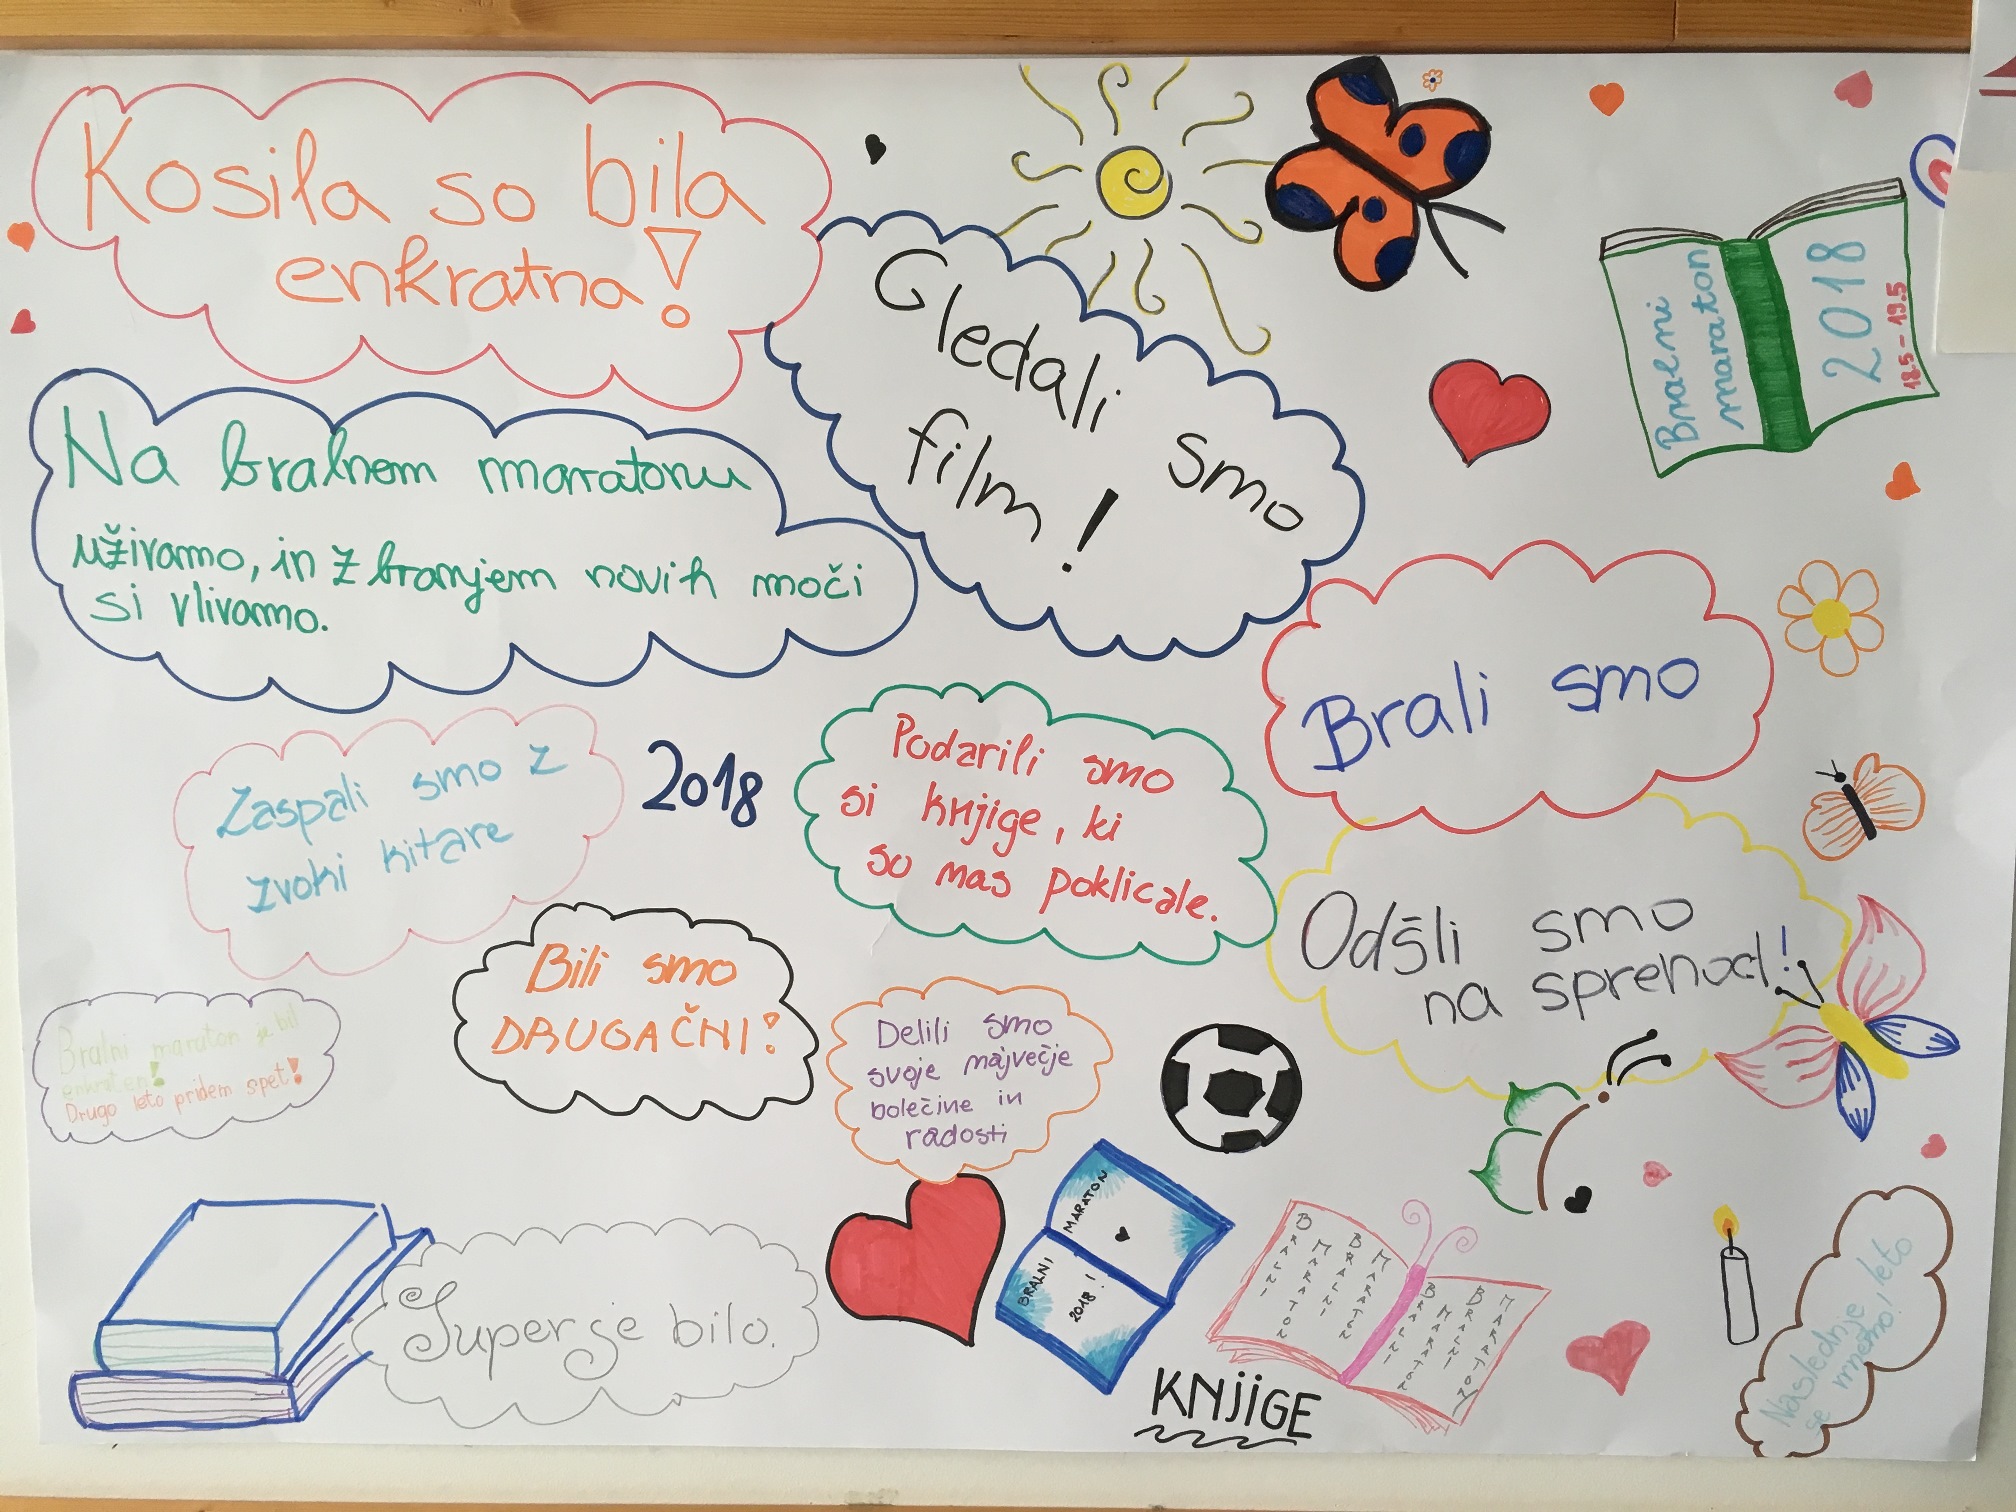 Kosila so bila
enkratna!
Gledali smo
film!
Bralni
maraton
2018
18.5 - 19.5
Na bralnem maratonu
uživamo, in z branjem novih moči
si vlivamo.
Brali smo
Zaspali smo z
zvoki kitare
2018
Podarili smo
si knjige, ki
so nas poklicale.
Odšli smo
na sprehod!
Bili smo
DRUGAČNI!
Bralni maraton je bil
enkraten!
Drugo leto pridem spet!
Delili smo
svoje največje
bolečine in
radosti
Super je bilo.
BRALNI
MARATON
2018!
BRALNI
MARATON
BRALNI
MARATON
BRALNI
MARATON
BRALNI
MARATON
KNJIGE
Naslednje leto
se vrnemo!